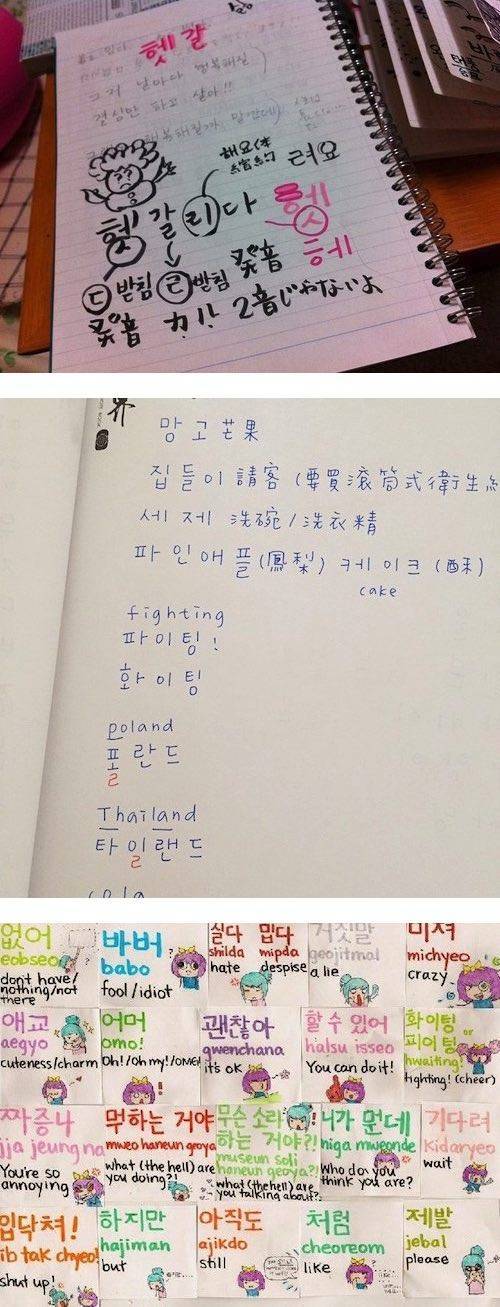 헷갈
그저 날마다 행복해질
결심만 하고 살아!!
해요体
縮約 려요
헷갈리다 헷
ㄷ받침 ㄹ받침 発音 헤
発音 カ!! 2音じゃないよ
망고 芒果
집들이 請客 (要買滾筒式衛生紙
세제 洗碗/洗衣精
파인애플(鳳梨) 케이크 (酥)
cake
fighting
파이팅!
화이팅
poland
폴란드
ㄹ
Thailand
타일랜드
ㄹ
cola
없어
eobseo
dont have/
nothing/not
there
바버
babo
fool/idiot
싫다 밉다
shilda mipda
hate despise
거짓말
geojitmal
a lie
미쳐
michyeo
crazy
애교
aegyo
cuteness/charm
어머
omo!
Oh!/Oh my!/OMG!
괜찮아
gwenchana
it's ok
할 수 있어
halsu isseo
You can do it!
화이팅 or
파이팅
hwaiting!
fighting! (cheer)
짜증나
jja jeung na
You're so
annoying
뭐하는 거야
mweo haneun geoya
what (the hell) are
you doing?!
무슨 소리
하는 거야?!
museun soli
haneun geoya?!
what (the hell) are
you talking about?
니가 뭔데
niga mweonde
Who do you
think you are?
기다려
kidaryeo
wait
입닥쳐!
ib tak chyeo!
shut up!
하지만
hajiman
but
아직도
ajikdo
still
처럼
cheoreom
like
제발
jebal
please